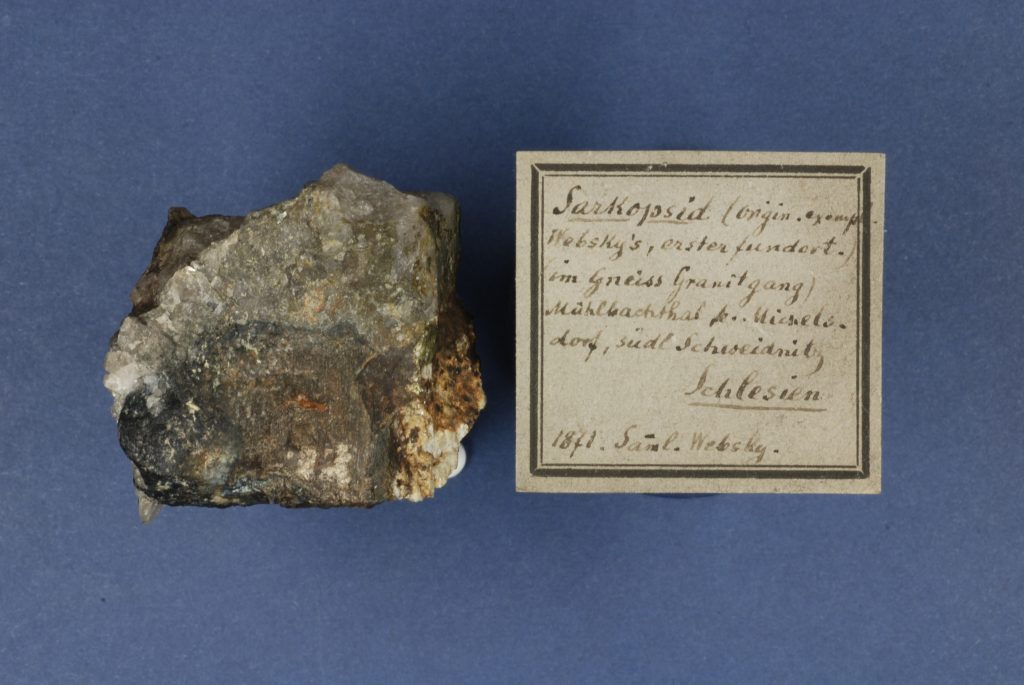 Sarkopsid (origin. exempl.
Websky's, erster fundort.)
(im Gneiss Granitgang)
Mühlbachthal b. Michels-
dorf, südl Schweidnitz
Schlesien
1871. Saml. Websky.